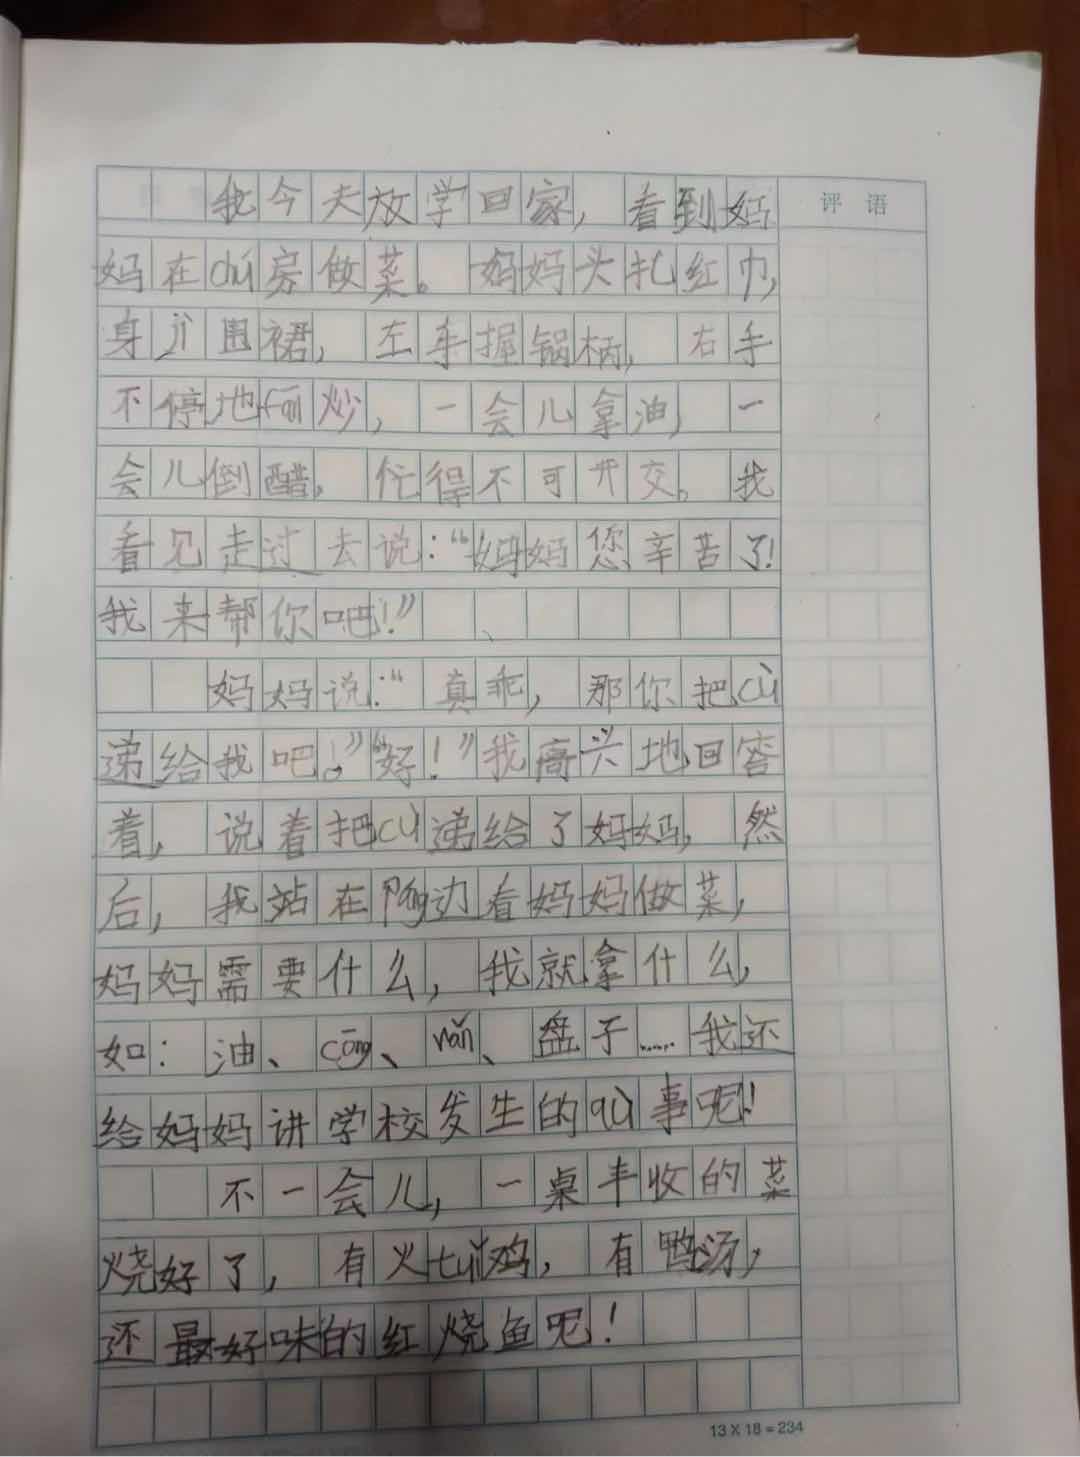 我今天放学回家，看到妈
评语
妈在chú房做菜。妈妈头扎红巾，
身jì围裙，左手握锅柄，右手
不停地fān炒，一会儿拿油，一
会儿倒醋，忙得不可开交。我
看见走过去说：“妈妈您辛苦了！
我来帮你吧！”
妈妈说：“真乖，那你把cù
递给我吧！”“好！”我高兴地回答
着，说着把cù递给了妈妈，然
后，我站在páng边看妈妈做菜，
妈妈需要什么，我就拿什么，
如：油、cōng、wǎn、盘子……我还
给妈妈讲学校发生的qù事呢！
不一会儿，一桌丰收的菜
烧好了，有火tuǐ鸡，有鸭汤，
还最好味的红烧鱼呢！
13×18=234